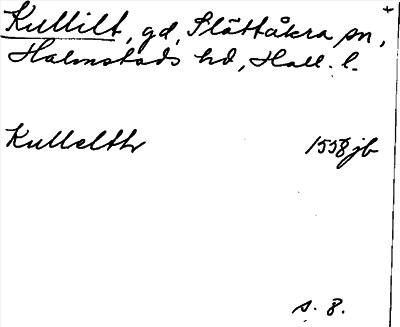 Kullilt, gd, Slättåkra sn,
Halmstads hd, Hall. l.
Kullelth 1558 jb
s. 8.